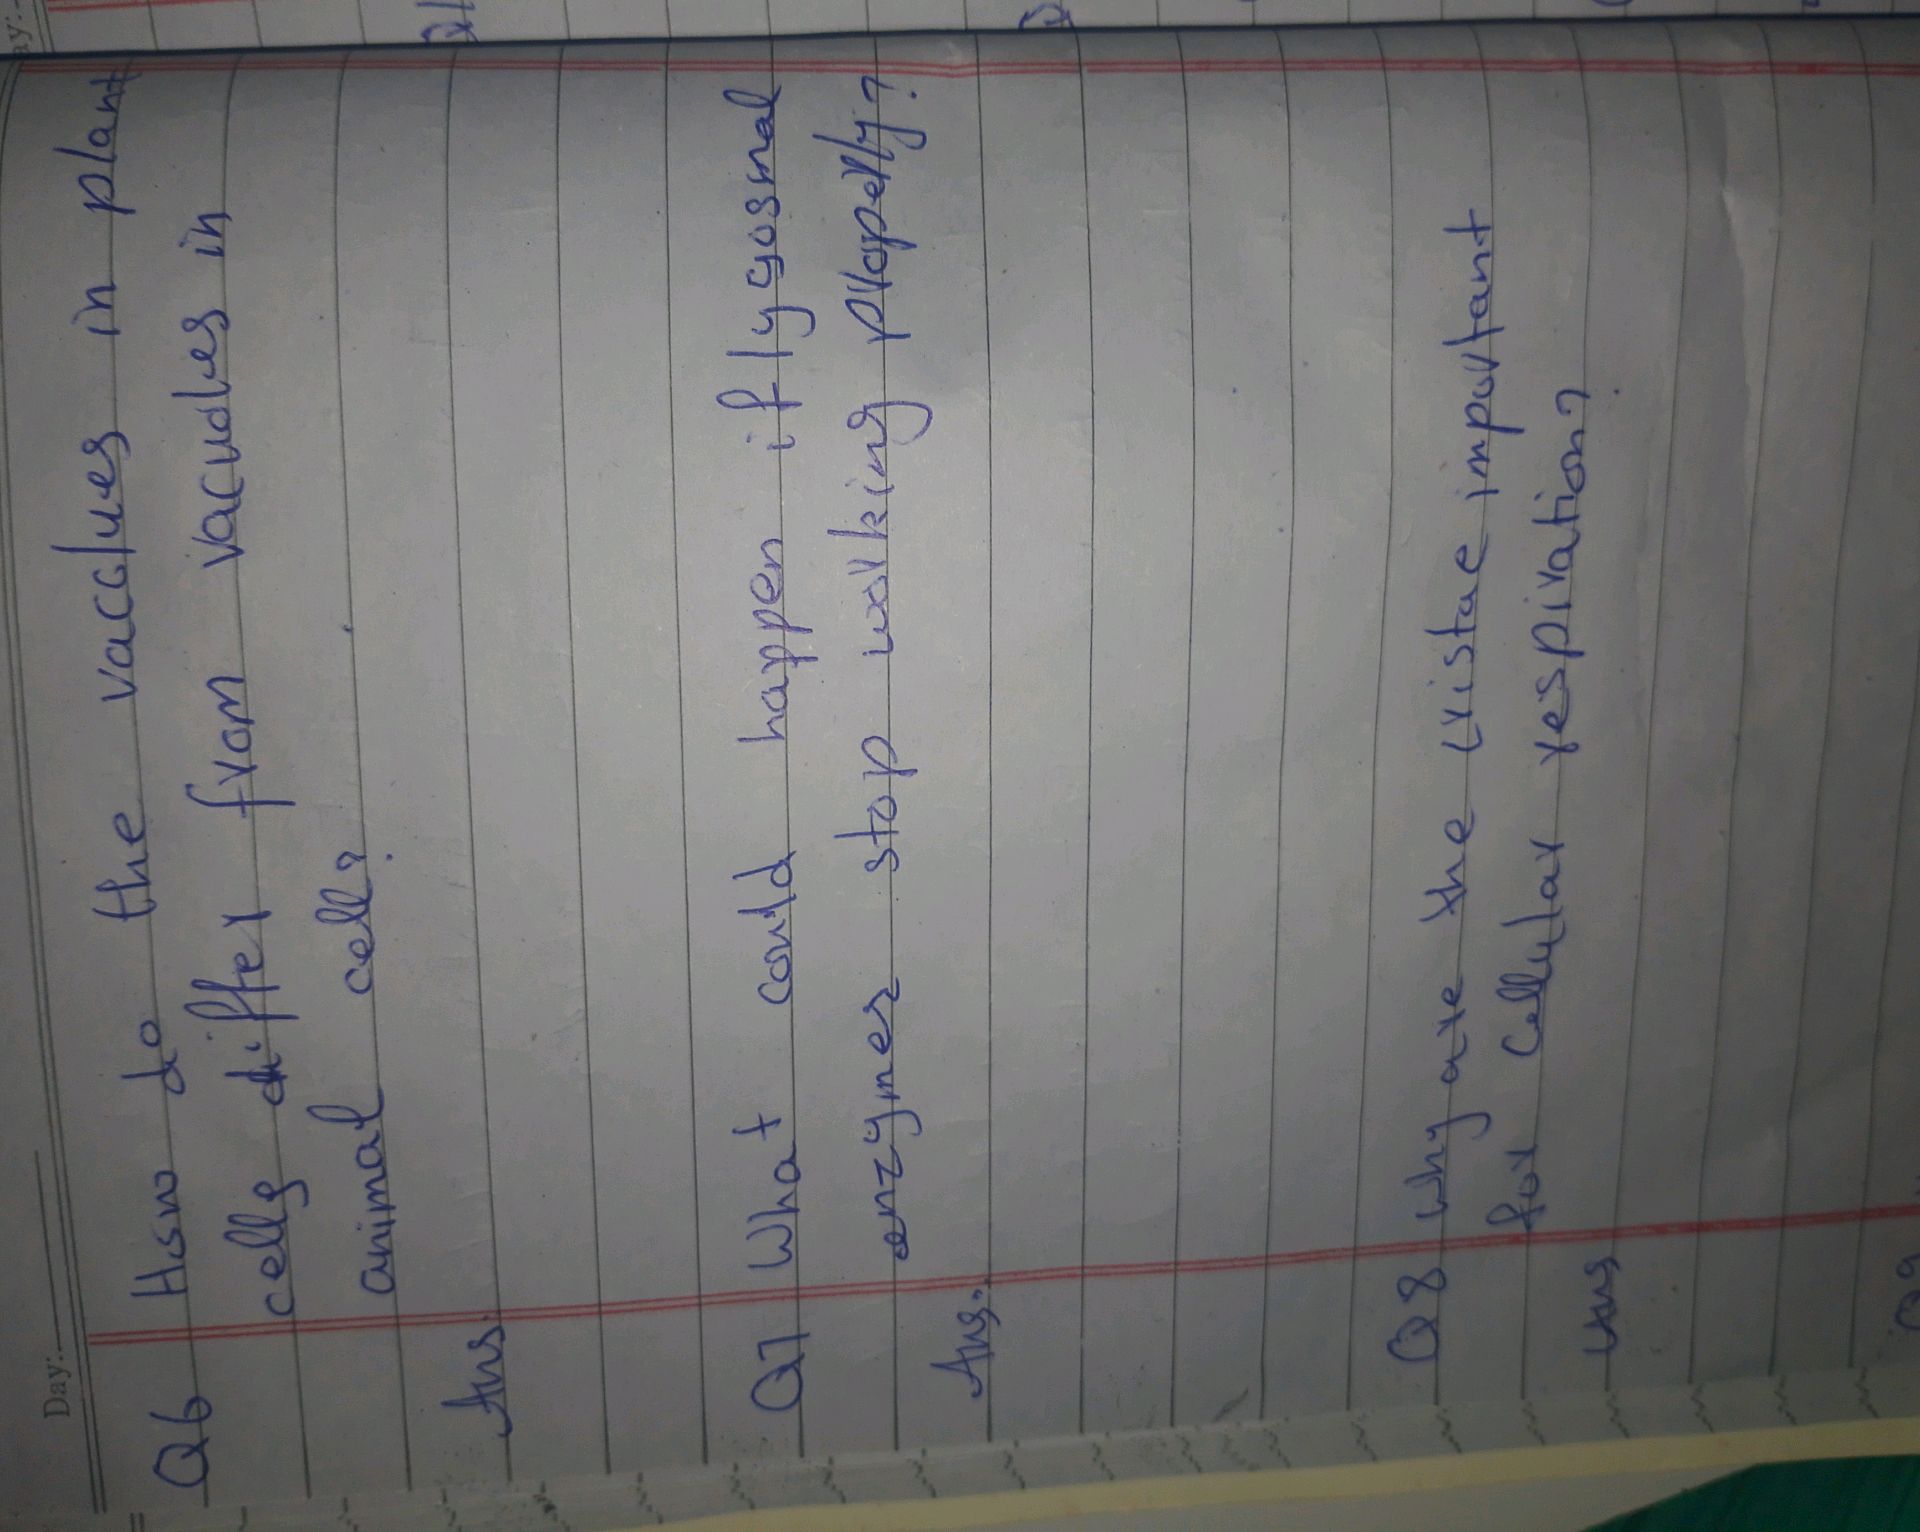 Day:
Q6 How do the vacalues in plant
cells differ from vacuoles in
animal cell?
Ans.
Q7 What could happen if lygosmal
enzymes stop working propelly?
Ans.
Q8 Why are the cristae important
for Cellular respiration?
Ans
Q9